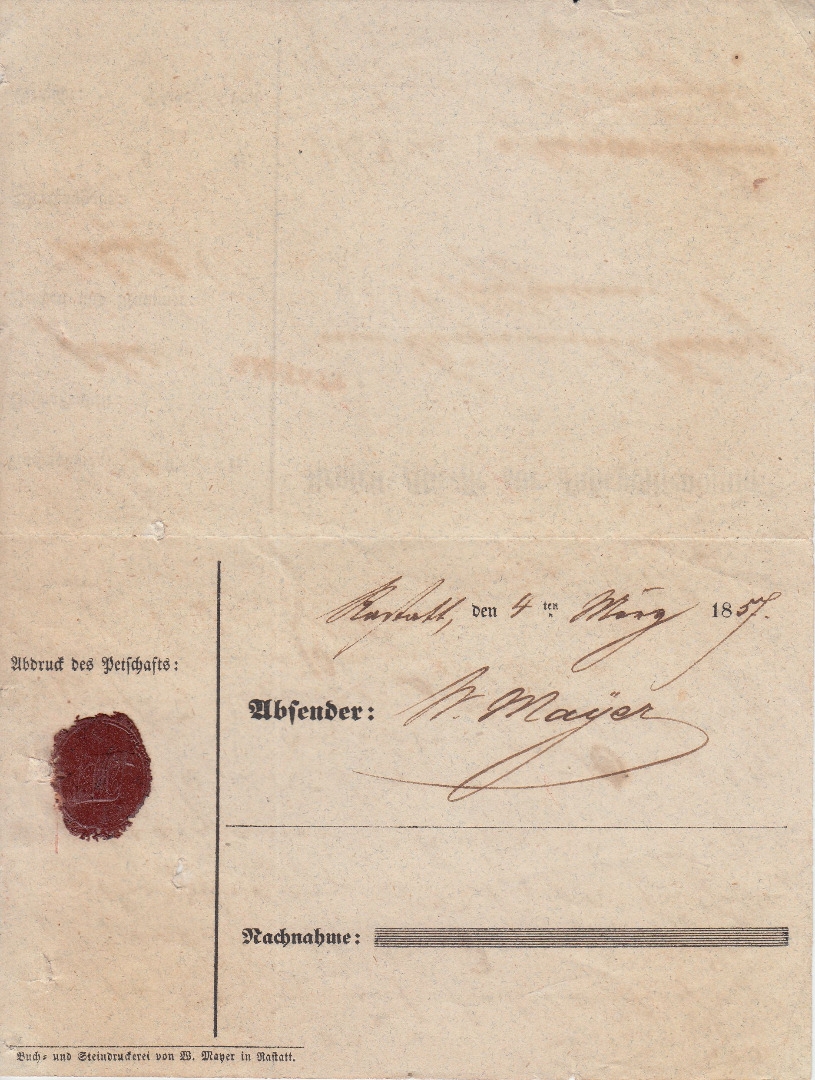 Rastatt, den 4 ten März 1857.
Abdruck des Petschafts:
Absender: W. Mayer
Nachnahme:
Buch- und Steindruckerei von W. Mayer in Rastatt.